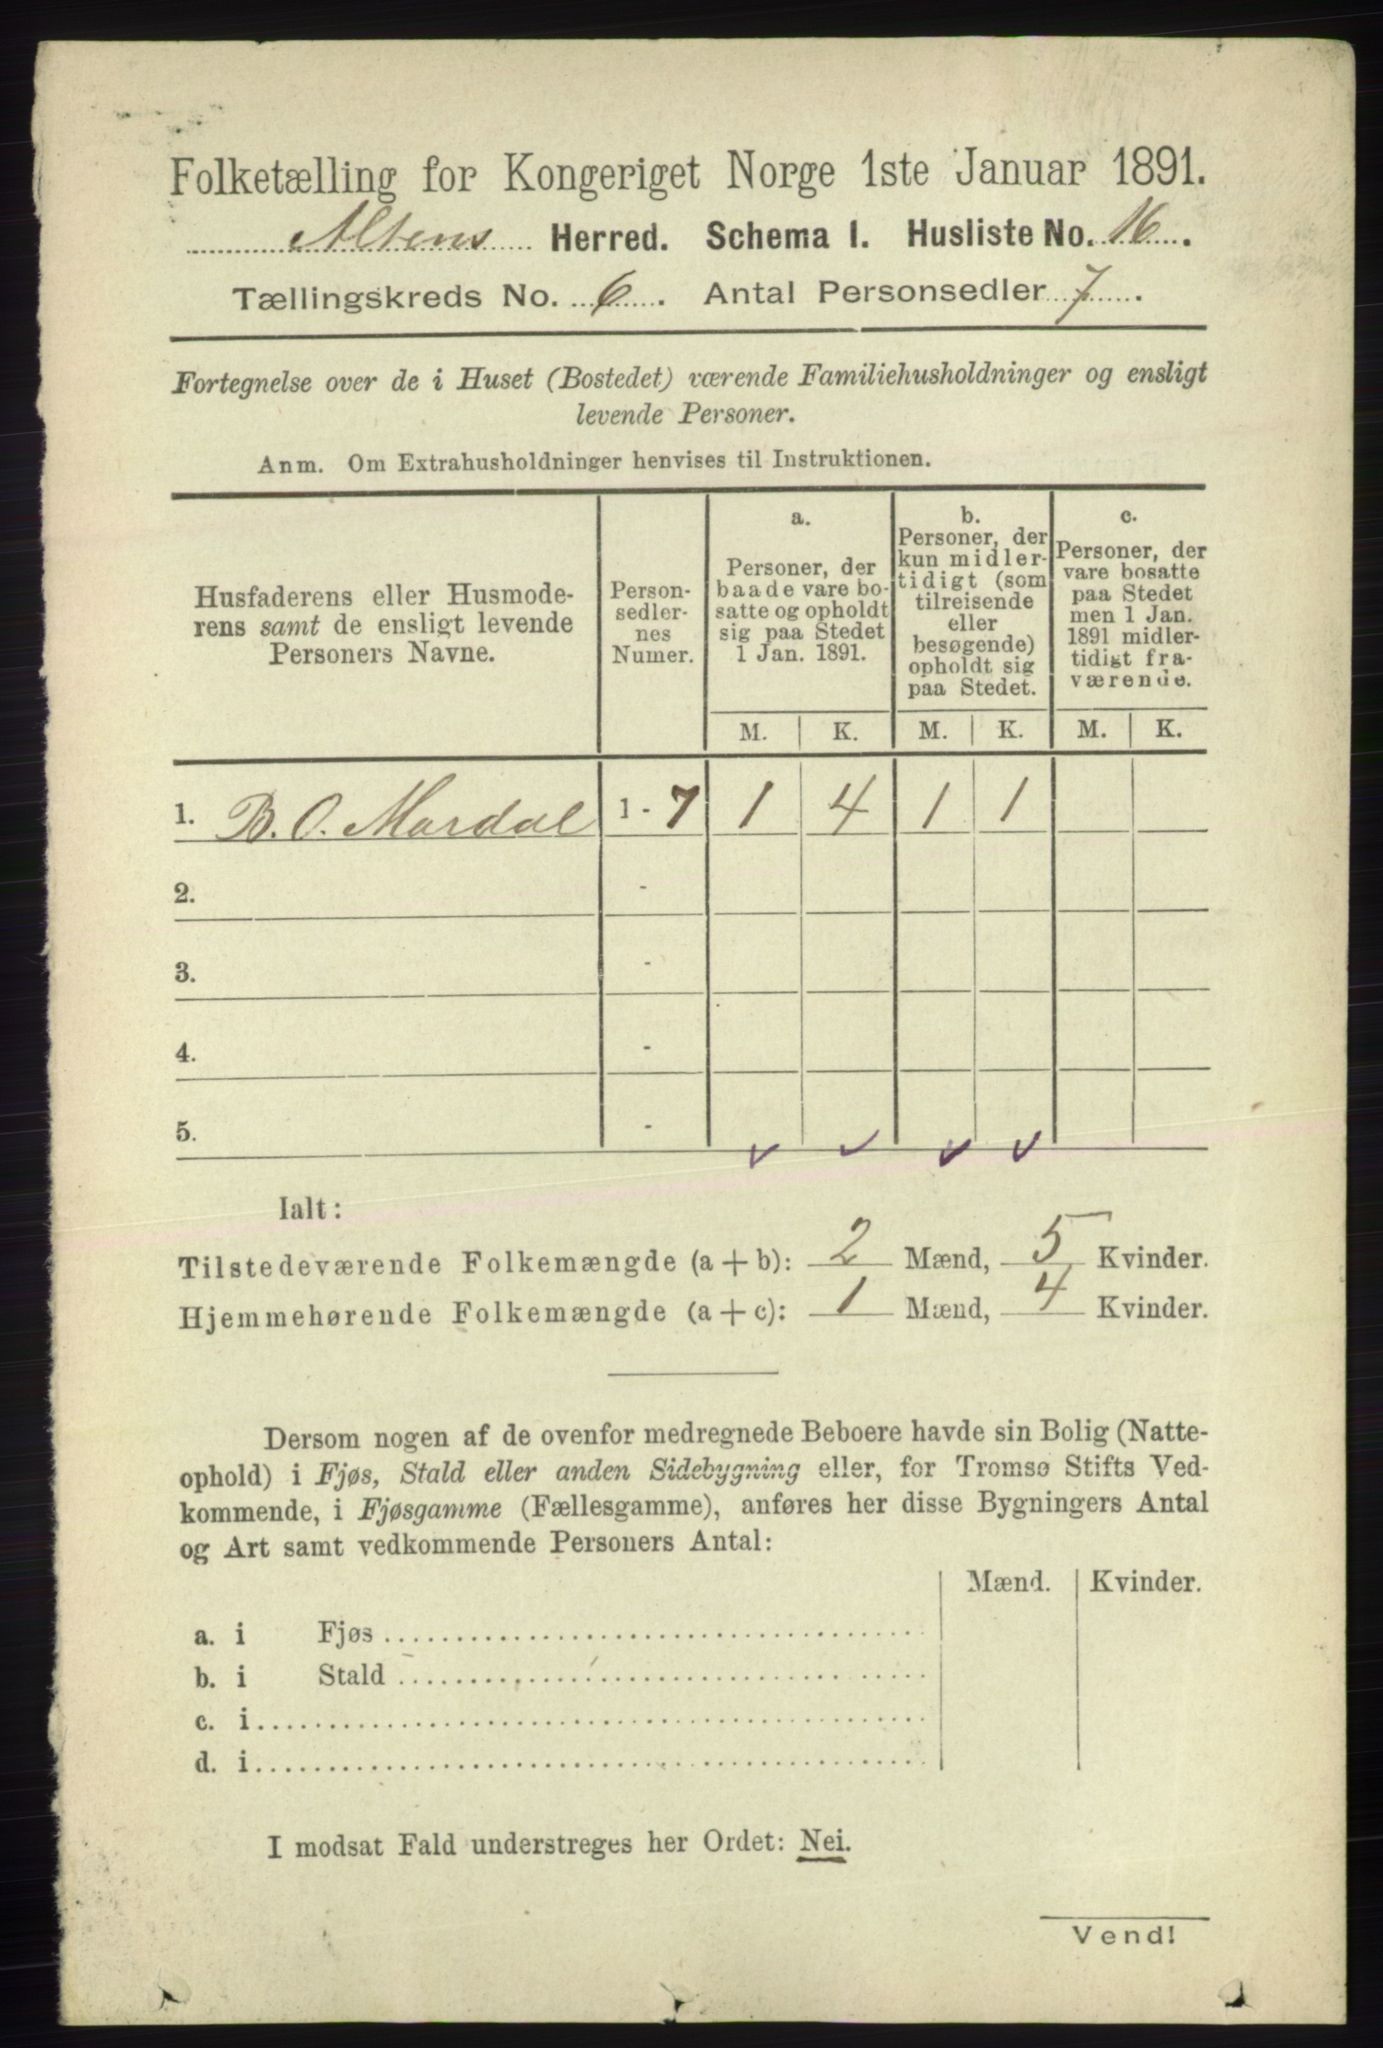 Folketælling for Kongeriget Norge 1ste Januar 1891.
Altens Herred. Schema I. Husliste No. 16.
Tællingskreds No. 6. Antal Personsedler 7.
Fortegnelse over de i Huset (Bostedet) værende Familiehusholdninger og ensligt
levende Personer.
Anm. Om Extrahusholdninger henvises til Instruktionen.
Husfaderens eller Husmode-
rens samt de ensligt levende
Personers Navne.
Person-
sedler-
nes
Numer.
a.
Personer, der
baade vare bo-
satte og opholdt
sig paa Stedet
1 Jan. 1891.
b.
Personer, der
kun midler-
tidigt (som
tilreisende
eller
besøgende)
opholdt sig
paa Stedet.
c.
Personer, der
vare bosatte
paa Stedet
men 1 Jan.
1891 midler-
tidigt fra-
værende.
M. K. M. K. M. K.
1. B. O. Mardal 1 - 7 1 4 1 1
2. -
3. -
4. -
5. -
Ialt:
Tilstedeværende Folkemængde (a + b): 2 Mænd, 5 Kvinder.
Hjemmehørende Folkemængde (a + c): 1 Mænd, 4 Kvinder.
Dersom nogen af de ovenfor medregnede Beboere havde sin Bolig (Natte-
ophold) i Fjøs, Stald eller anden Sidebygning eller, for Tromsø Stifts Ved-
kommende, i Fjøsgamme (Fællesgamme), anføres her disse Bygningers Antal
og Art samt vedkommende Personers Antal:
Mænd. Kvinder.
a. i Fjøs
b. i Stald
c. i
d. i
I modsat Fald understreges her Ordet: Nei.
Vend!